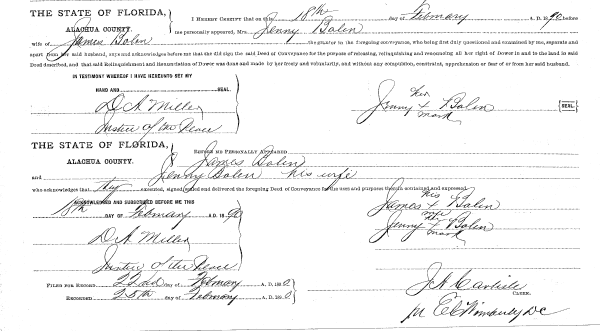 THE STATE OF FLORIDA,
ALACHUA COUNTY.
I HEREBY CERTIFY that on this 18th day of February A. D. 1890, before
me personally appeared, Mrs. Jenny Bolen
wife of James Bolen the grantor in the foregoing conveyance, who being first duly questioned and examined by me, separate and
apart from her said husband, says and acknowledges before me that she did sign the said Deed or Conveyance for the purpose of releasing, relinquishing and renouncing all her right of Dower in and to the land in said
Deed described, and that said Relinquishment and Renunciation of Dower was done and made by her freely and voluntarily, and without any compulsion, constraint, apprehension or fear of or from her said husband.
IN TESTIMONY WHEREOF I HAVE HEREUNTO SET MY
HAND AND SEAL.
D. A. Miller
Justice of the Peace
her
Jenny + Bolen [SEAL]
mark
THE STATE OF FLORIDA,
ALACHUA COUNTY.
BEFORE ME PERSONALLY APPEARED
James Bolen
and Jenny Bolen his wife
who acknowledges that they executed, signed sealed and delivered the foregoing Deed of Conveyance for the uses and purposes therein contained and expressed.
ACKNOWLEDGED AND SUBSCRIBED BEFORE ME THIS
18th DAY OF February A. D. 1890
D. A. Miller
Justice of the Peace
his
James + Bolen
Jenny + Bolen
mark
FILED FOR RECORD 22nd day of February A. D. 1890
RECORDED 25th day of February A. D. 1890
J A Carlisle
CLERK.
pr E C Wimberly DC